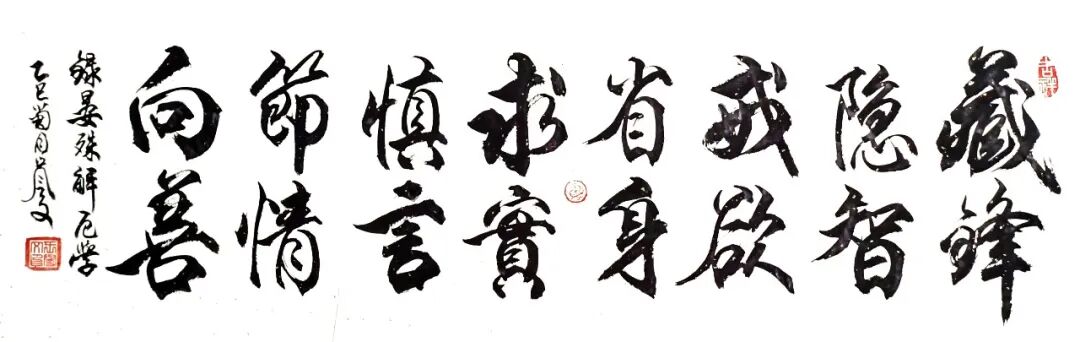 藏鋒
隐智
戒欲
省身
求實
慎言
節情
向善
録晏殊解厄学
乙巳菊月